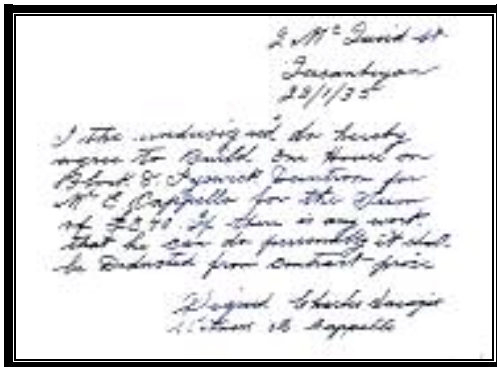 2 Mc David St
28/1/35
I the undersigned do hereby
agree to Build One House on
Block 8. for
Mr C Cappello for the Sum
of If there is any work
that he can do personally it shall
be Deducted from Contract price
Signed Charles
Witness Cappello